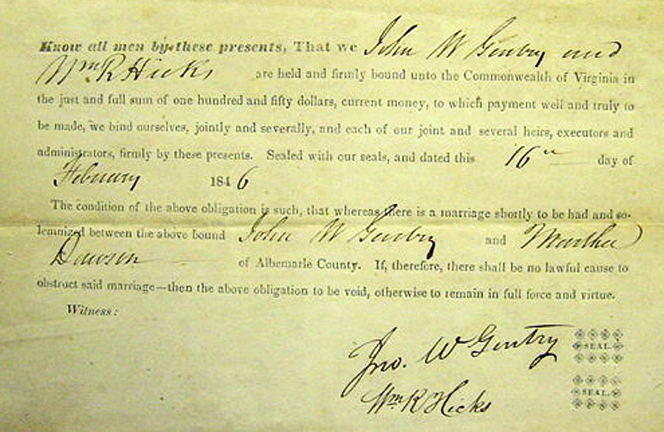 Know all men by these presents, That we John W Gentry and
Wm R Hicks are held and firmly bound unto the Commonwealth of Virginia in
the just and full sum of one hundred and fifty dollars, current money, to which payment well and truly to
be made, we bind ourselves, jointly and severally, and each of our joint and several heirs, executors and
administrators, firmly by these presents. Sealed with our seals, and dated this 16th day of
February 1846
The condition of the above obligation is such, that whereas there is a marriage shortly to be had and so-
lemnized between the above bound John W Gentry and Martha
Dawson of Albemarle County. If, therefore, there shall be no lawful cause to
obstruct said marriage—then the above obligation to be void, otherwise to remain in full force and virtue.
Witness:
Jno. W Gentry SEAL.
Wm R Hicks SEAL.